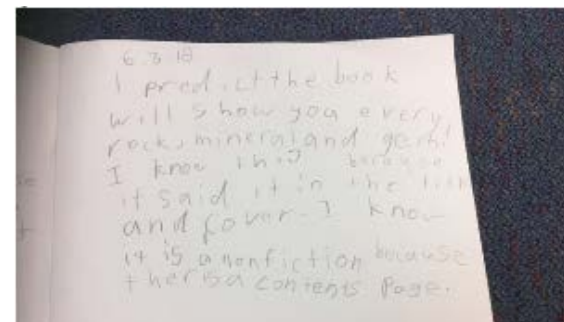 6 3 18
I predict the book
will show you every
rock, mineral and gem!
I know this because
it said it in the
and cover. I know
it is a nonfiction because
ther is a contents Page.